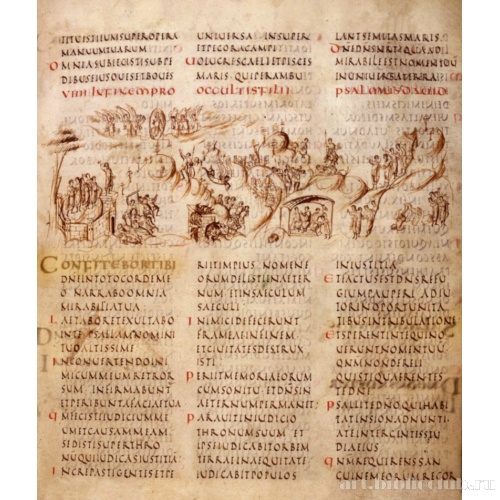 TITUISTIEUMSUPEROPERA
MANUUMTUARUM
OMNIASUBIECISTISUBPE
DIBUSEIUSOUESETBOUES
UNIUERSAINSUPER
ETPECORACAMPI
UOLUCRESCAELIETPISCES
MARIS QUIPERAMBU
LANTSEMITASMARIS
MIRABILEESTNOMENTUŪ
INUNIUERSATERRA
VIIII INFINEMPRO OCCULTISFILII PSALMUSDAUID
CONFITEBORTIBI
DNEINTOTOCORDEME
O NARRABOOMNIA
MIRABILIATUA
LAETABORETEXULTABO
INTE PSALLAMNOMINI
TUOALTISSIME
INCONUERTENDOINI
MICUMMEUMRETROR
SUM INFIRMABUNT
ETPERIBUNTAFACIETUA
QMFECISTIIUDICIUMME
UMETCAUSAMMEAM
SEDISTISUPERTHRO
NUQUIIUDICASIUSTITIĀ
INCREPASTIGENTESETPE
RIITIMPIUS NOMENE
ORUMDELISTIINAETER
NUM ETINSAECULUM
SAECULI
INIMICIDEFECERUNT
FRAMEAEINFINEM
ETCIUITATESDESTRUX
ISTI
PERIITMEMORIAEORUM
CUMSONITU ETDNSIN
AETERNUMPERMANET
PARAUITINIUDICIO
THRONUMSUUM ET
IPSEIUDICABITORBEM
TERRAEINAEQUITATE
IUDICABITPOPULOS
INIUSTITIA
ETFACTUSESTDNSREFU
GIUMPAUPERI ADIU
TORINOPORTUNITA
TIBUSINTRIBULATIONE
ETSPERENTINTEQUINO
UERUNTNOMENTUŪ
QMNONDERELINQUIS
QUISTIQUAERENTES
TEDNE
PSALLITEDNOQUIHABI
TATINSIONADNUNTI
ATEINTERGENTESSTU
DIAEIUS
QMREQUIRENSSAN
GUINEMEORUMRECOR
art.biblioclub.ru